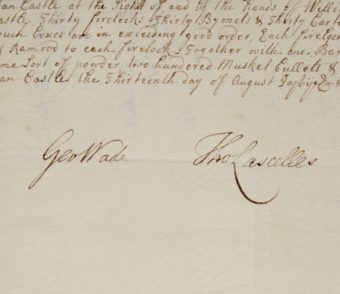 an Castle at the Sight of and of the hands of Willi
astle Thirty firelocks Thirty Byonets & Thirty Cart
ouch Boxes are in exceeding good order, Each firelo
Ramrod to each firelock Together with one Ba
ome sort of powder two hundered Musket Bullets &
an Castle the Thirteenth day of August
Geo Wade Tho Lascelles